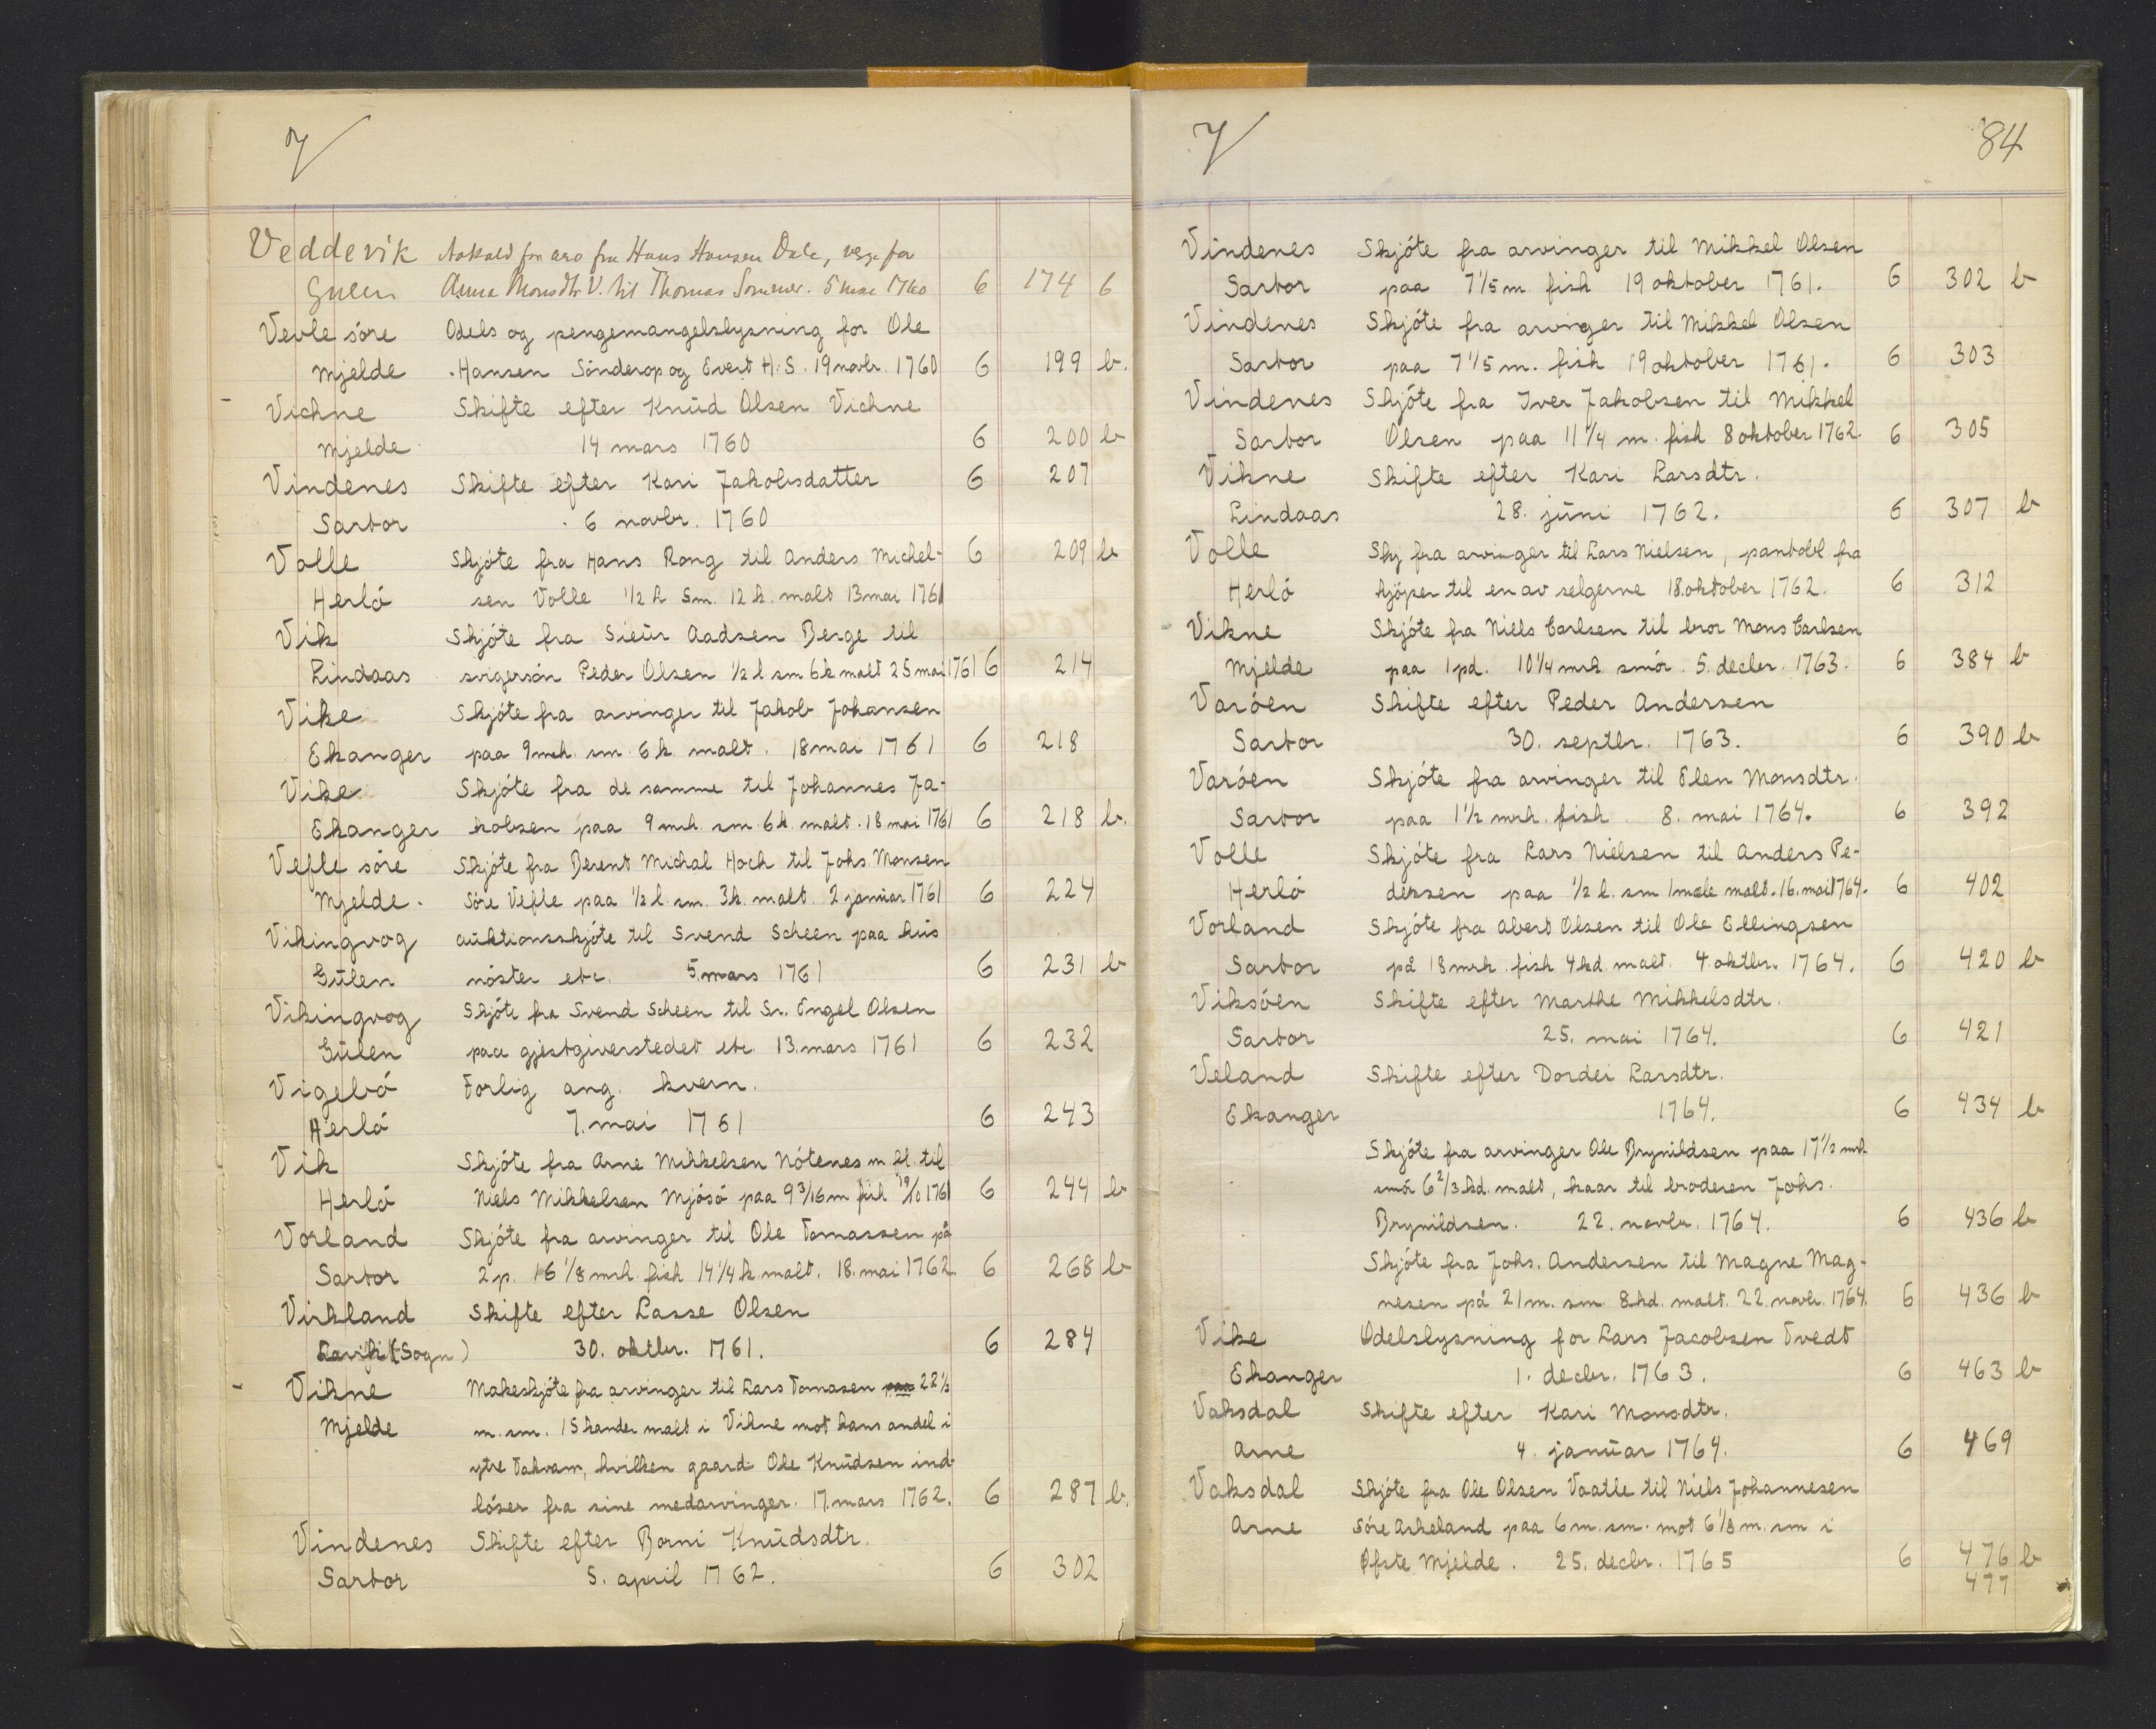 V
Veddevik Avkald for arv fra Hans Hansen Dale, verge for
Gulen Anna Monsdtr V. til Thomas Sommer. 5 mai 1760 6 174 b
Vevle søre Odels og pengemangelslysning for Ole
Mjelde Hansen Sönderop og Evert H. S. 19 novbr. 1760 6 199 b.
Vichne Skifte efter Knud Olsen Vichne
Mjelde 14 mars 1760 6 200 b
Vindenes Skifte efter Kari Jakobsdatter 6 207
Sartor 6 novbr. 1760
Volle Skjóte fra Hans Rong til Anders Michel- 6 209 b
Herló sen Volle 1/2 l. sm. 12 k. malt 13 mai 1761
Vik Skjóte fra Sieur Aadsen Berge til
Lindaas svigersón Peder Olsen 1/2 l sm 6 k malt 25 mai 1761 6 214
Vike Skjóte fra arvinger til Jakob Johansen
Ekanger paa 9 mrk. sm. 6 k. malt. 18 mai 1761 6 218
Vike Skjóte fra de samme til Johannes Ja-
Ekanger kobsen paa 9 mrk. sm. 6 k. malt. 18 mai 1761 6 218 b.
Vefle sóre Skjóte fra Berent Michal Hoch til Johs. Monsen
Mjelde. Sóre Vefle paa 1/2 l. sm. 3 k. malt. 2 januar 1761 6 224
Vikingvog auktionsskjóte til Svend Scheen paa hus
Gulen nóster etc. 5. mars 1761 6 231 b
Vikingvog Skjóte fra Svend Scheen til Sr. Engel Olsen
Gulen paa gjestgiverstedet etc. 13. mars 1761 6 232
Vigebó Forlig ang. kvern.
Herló 7. mai 1761 6 243
Vik Skjóte fra Arne Mikkelsen Nótenes m fl. til
Herló Niels Mikkelsen Mjósó paa 9 3/16 m fisk 19/10 1761 6 244 b
Vorland Skjóte fra arvinger til Ole Tomassen på
Sartor 2 p. 16 1/8 mrk. fisk 14 1/4 k. malt. 18. mai 1762. 6 268 b
Virkland Skifte efter Lasse Olsen
Lavik (Sogn) 30. oktbr. 1761. 6 284
Vikne Makeskjóte fra arvinger til Lars Tomasen paa 22 1/2
Mjelde m. sm. 15 kander malt i Vikne mot hans andel i
ytre Dakvam, hvilken gaard Ole Knudsen ind-
lóser fra sine medarvinger. 17. mars 1762. 6 287 b.
Vindenes Skifte efter Borni Knudsdtr.
Sartor 5. april 1762. 6 302
V 84
Vindenes Skjóte fra arvinger til Mikkel Olsen
Sartor paa 7 1/5 m. fisk 19 oktober 1761. 6 302 b
Vindenes Skjóte fra arvinger til Mikkel Olsen
Sartor paa 7 1/5 m. fisk 19 oktober 1761. 6 303
Vindenes Skjóte fra Iver Jakobsen til Mikkel
Sartor Olsen paa 11 1/4 m. fisk 8 oktober 1762. 6 305
Vikne Skifte efter Kari Larsdtr.
Lindaas 28. juni 1762. 6 307 b
Volle Skj fra arvinger til Lars Nielsen, pantobl fra
Herló kjóper til en av selgerne 18. oktober 1762. 6 312
Vikne Skjóte fra Niels Carlsen til bror Mons Carlsen
Mjelde paa 1 pd. 10 1/4 mrk smór 5. decbr. 1763. 6 384 b
Varóen Skifte efter Peder Andersen
Sartor 30. septbr. 1763. 6 390 b
Varóen Skjóte fra arvinger til Elen Monsdtr.
Sartor paa 1 1/2 mrk. fisk. 8. mai 1764. 6 392
Volle Skjóte fra Lars Nielsen til Anders Pe-
Herló dersen paa 1/2 l. sm 1 mæle malt. 16. mai 1764. 6 402
Vorland Skjóte fra Abert Olsen til Ole Ellingsen
Sartor på 18 mrk. fisk 4 kd. malt. 4. oktbr. 1764. 6 420 b
Viksóen Skifte efter Marthe Mikkelsdtr.
Sartor 25. mai 1764. 6 421
Veland Skifte efter Dordei Larsdtr.
Ekanger 1764. 6 434 b
Skjóte fra arvinger Ole Brynildsen paa 17 1/2 mrk
smór 6 2/3 kd. malt, kaar til broderen Johs.
Brynildsen. 22. novbr. 1764. 6 436 b
Skjóte fra Johs. Andersen til Magne Mag-
nesen på 21 m. sm. 8 kd. malt. 22. novbr. 1764. 6 436 b
Vike Odelslysning for Lars Jacobsen Tvedt
Ekanger 1. decbr. 1763. 6 463 b
Vaksdal Skifte efter Kari Monsdtr.
Arne 4. januar 1764. 6 469
Vaksdal Skjóte fra Ole Olsen Vaatle til Niels Johannesen
Arne Sóre Askeland paa 6 m. sm. mot 6 1/8 m. sm i
Øfste Mjelde. 25. decbr. 1765 6 476 b
477